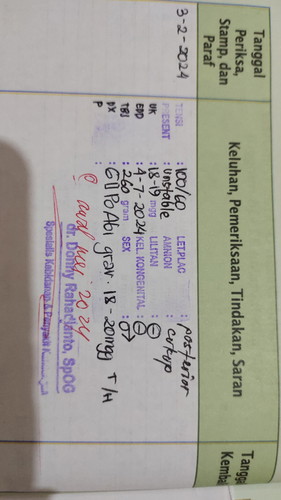 Tanggal
Periksa,
Stamp, dan
Paraf
Keluhan, Pemeriksaan, Tindakan, Saran
Tangga
Kemba
3-2-2024
TENSI : 100/60 LET.PLAC : posterior
PRESENT : unstable AMNION : cukup
UK : 18-19 mgg LILITAN : ⊖
EDD : 4-7-2024 KEL. KONGENITAL : ⊖
TBJ : 260 gram SEX : ♂
DX : GIIP0Ab1 grav. 18-20mgg T/H
P :
℗ awal 2024
dr. Donny SpOG
Spesialis Kebidanan & Penyakit